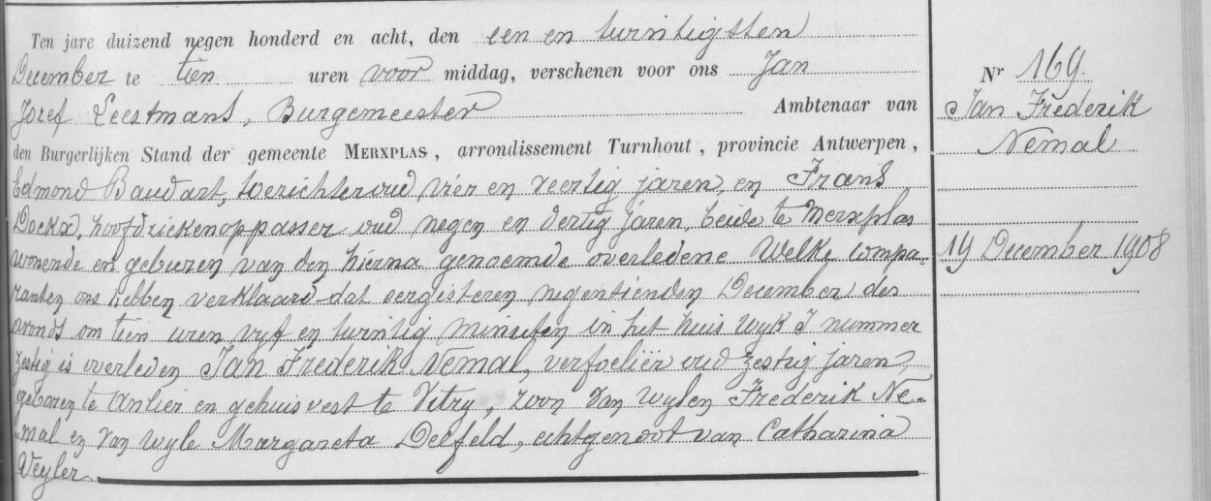 Ten jare duizend negen honderd en acht, den een en twintigsten
December te tien uren voor middag, verschenen voor ons Jan
Jozef Leestmans, Burgemeester Ambtenaar van
den Burgerlijken Stand der gemeente MERXPLAS, arrondissement Turnhout, provincie Antwerpen,
Edmond Baudart, toezichter oud vier en veertig jaren, en Frans
Dockx, hoofdziekenoppasser oud negen en dertig jaren, beide te Merxplas
wonende en geburen van den hierna genoemde overledene Welke compa-
ranten ons hebben verklaard dat eergisteren negentienden December des
avonds om tien uren vyf en twintig minuten in het huis wyk I nummer
zestig is overleden Jan Frederik Nemal, oud zestig jaren,
geboren te Anlier en gehuisvest te Vitry, zoon van wylen Frederik Ne-
mal en van wyle Margareta Deefeld, echtgenoot van Catharina
Veyler.
Nr 169.
Jan Frederik
Nemal
19 December 1908